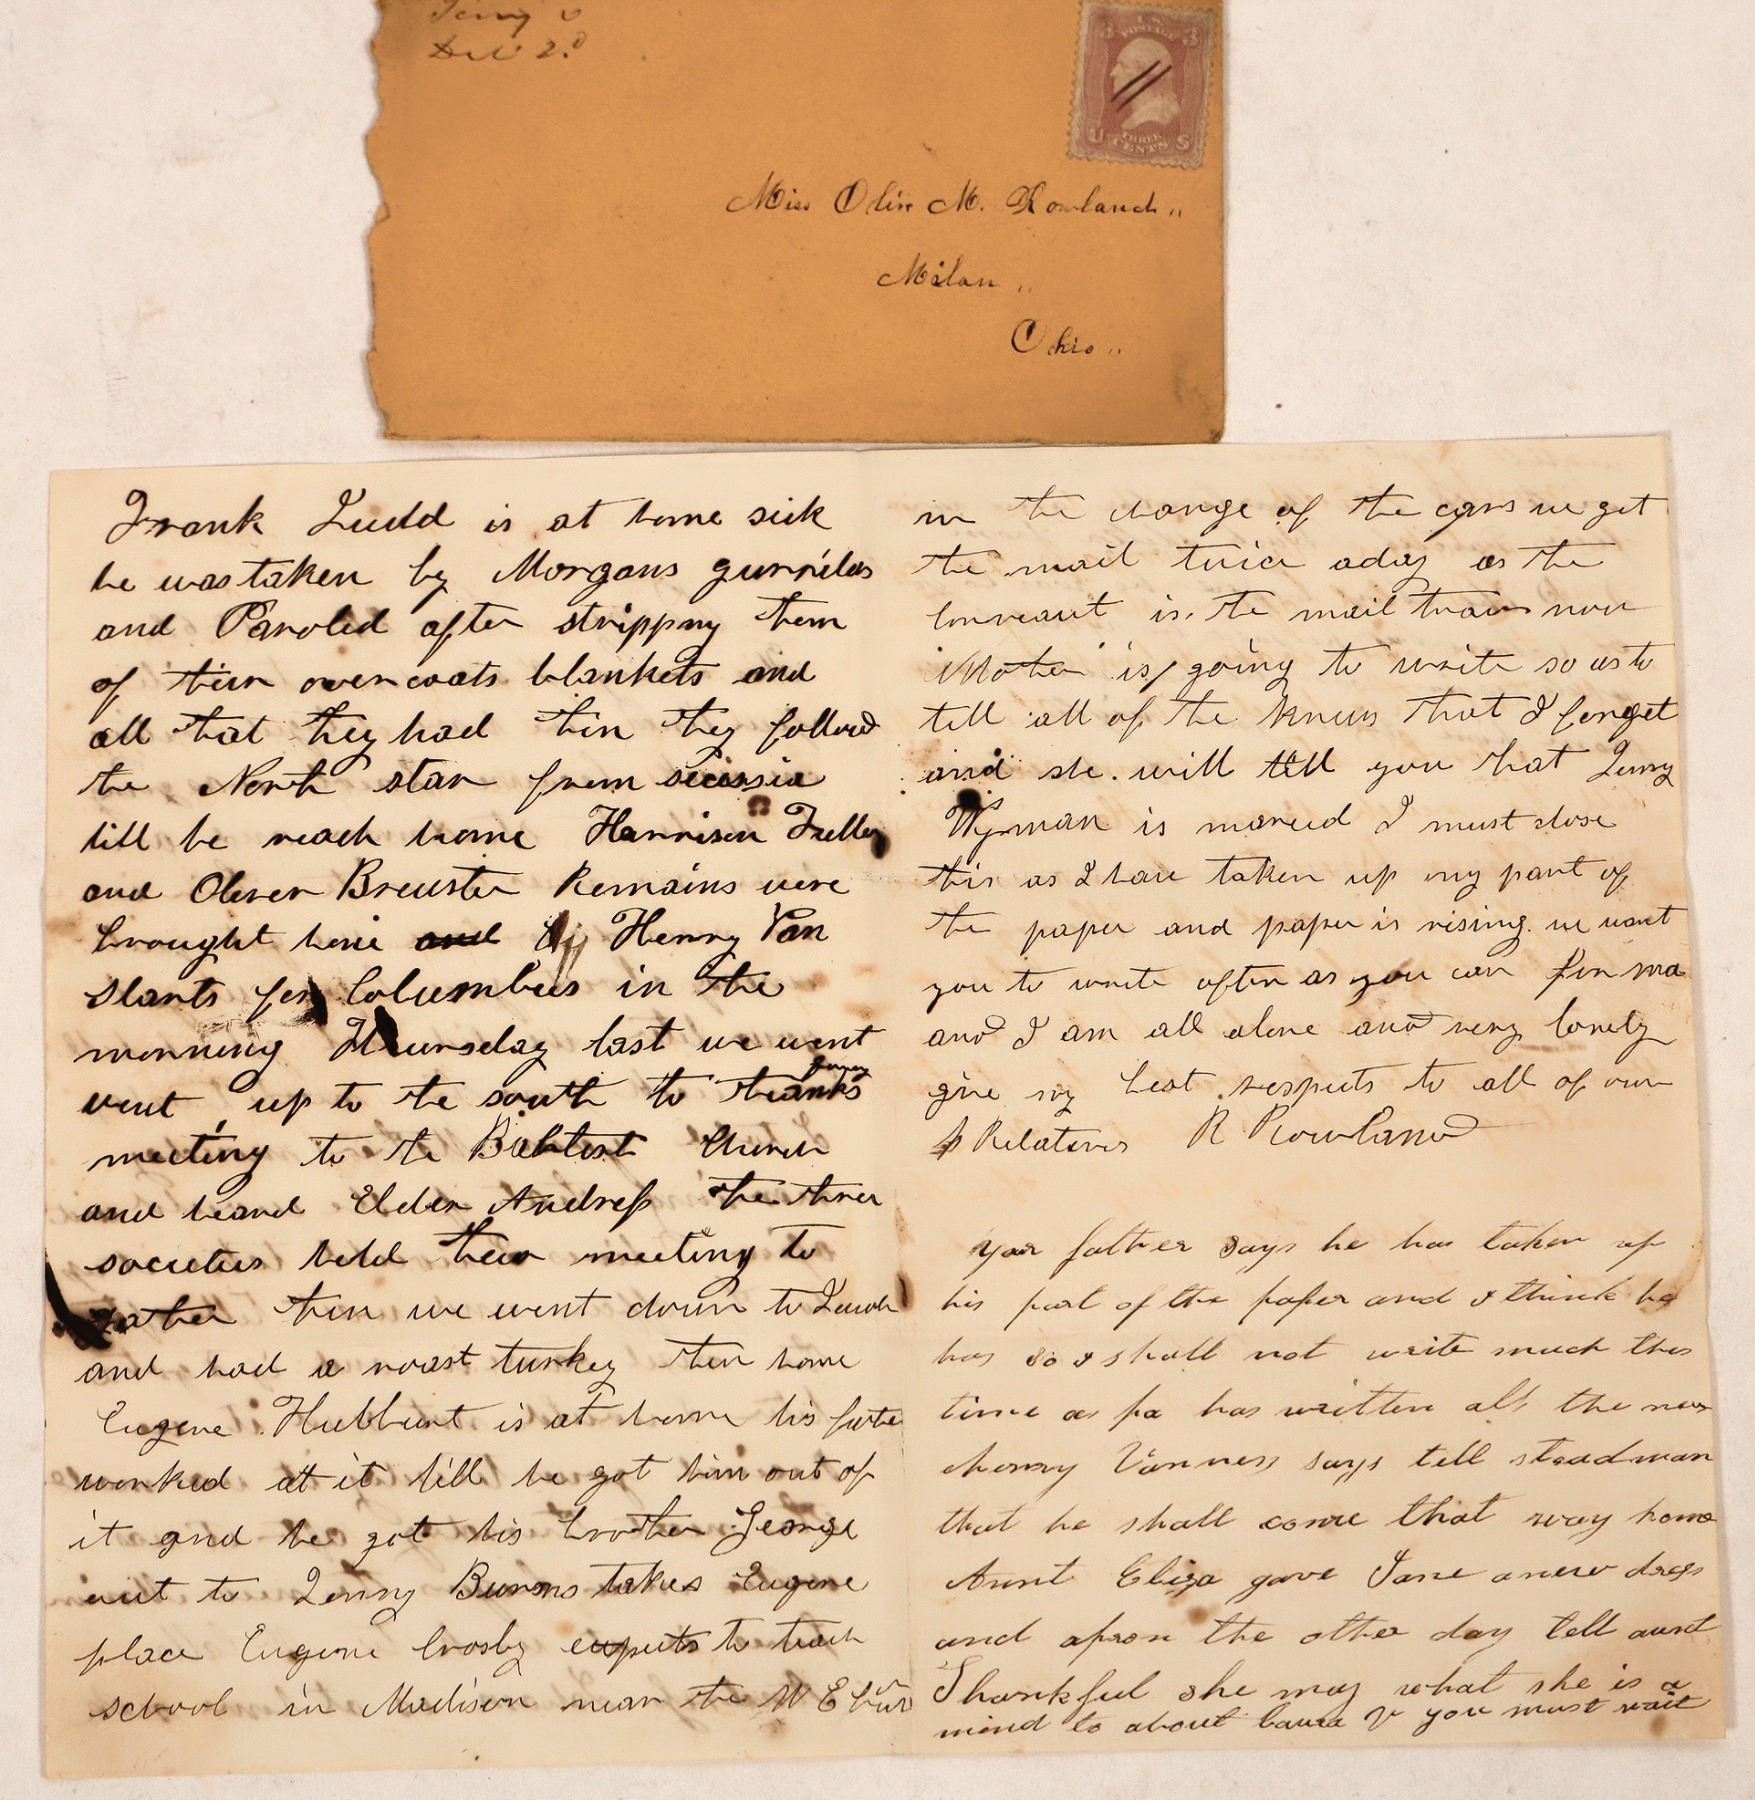 Dec 2d
U.S. POSTAGE
3 3
U THREE S
CENTS
Miss Olive M. Rowland
Milan
Ohio
Frank Judd is at home sick
he was taken by Morgans gurrilas
and Paroled after stripping them
of their over coats blankets and
all that they had then they follow
the North star from secessia
till he reach home Harrison Fuller
and Oliver Brewster Remains were
brought home by Henry Van
starts for Columbus in the
morning Thursday last we went
went up to the south to thanks
meeting to the Babtist Church
and heard Elder Andress the three
societies held their meeting to
gather then we went down to
and had a roast turkey then home
Eugene Hulburt is at home his
worked at it till he got him out of
it and he got his brother George
out to Burns takes Eugene
place Eugene Crosby expects to teach
school in Madison near the M E
in the change of the cars we get
the mail twice aday as the
is the mail train now
Mother is going to write so as to
tell all of the knews that I forget
and she will tell you that
Wyman is maried I must close
this as I have taken up my part of
the paper and paper is rising we want
you to write often as you can for ma
and I am all alone and very lonely
give my best respects to all of our
Relatives R Rowland
your father says he has taken up
his part of the paper and I think he
has so I shall not write much this
time as pa has written all the news
Vanness says tell steadman
that he shall come that way home
Aunt Eliza gave Jane anew dress
and apron the other day tell aunt
Thankful she may what she is a
mind to about Laura you must wait